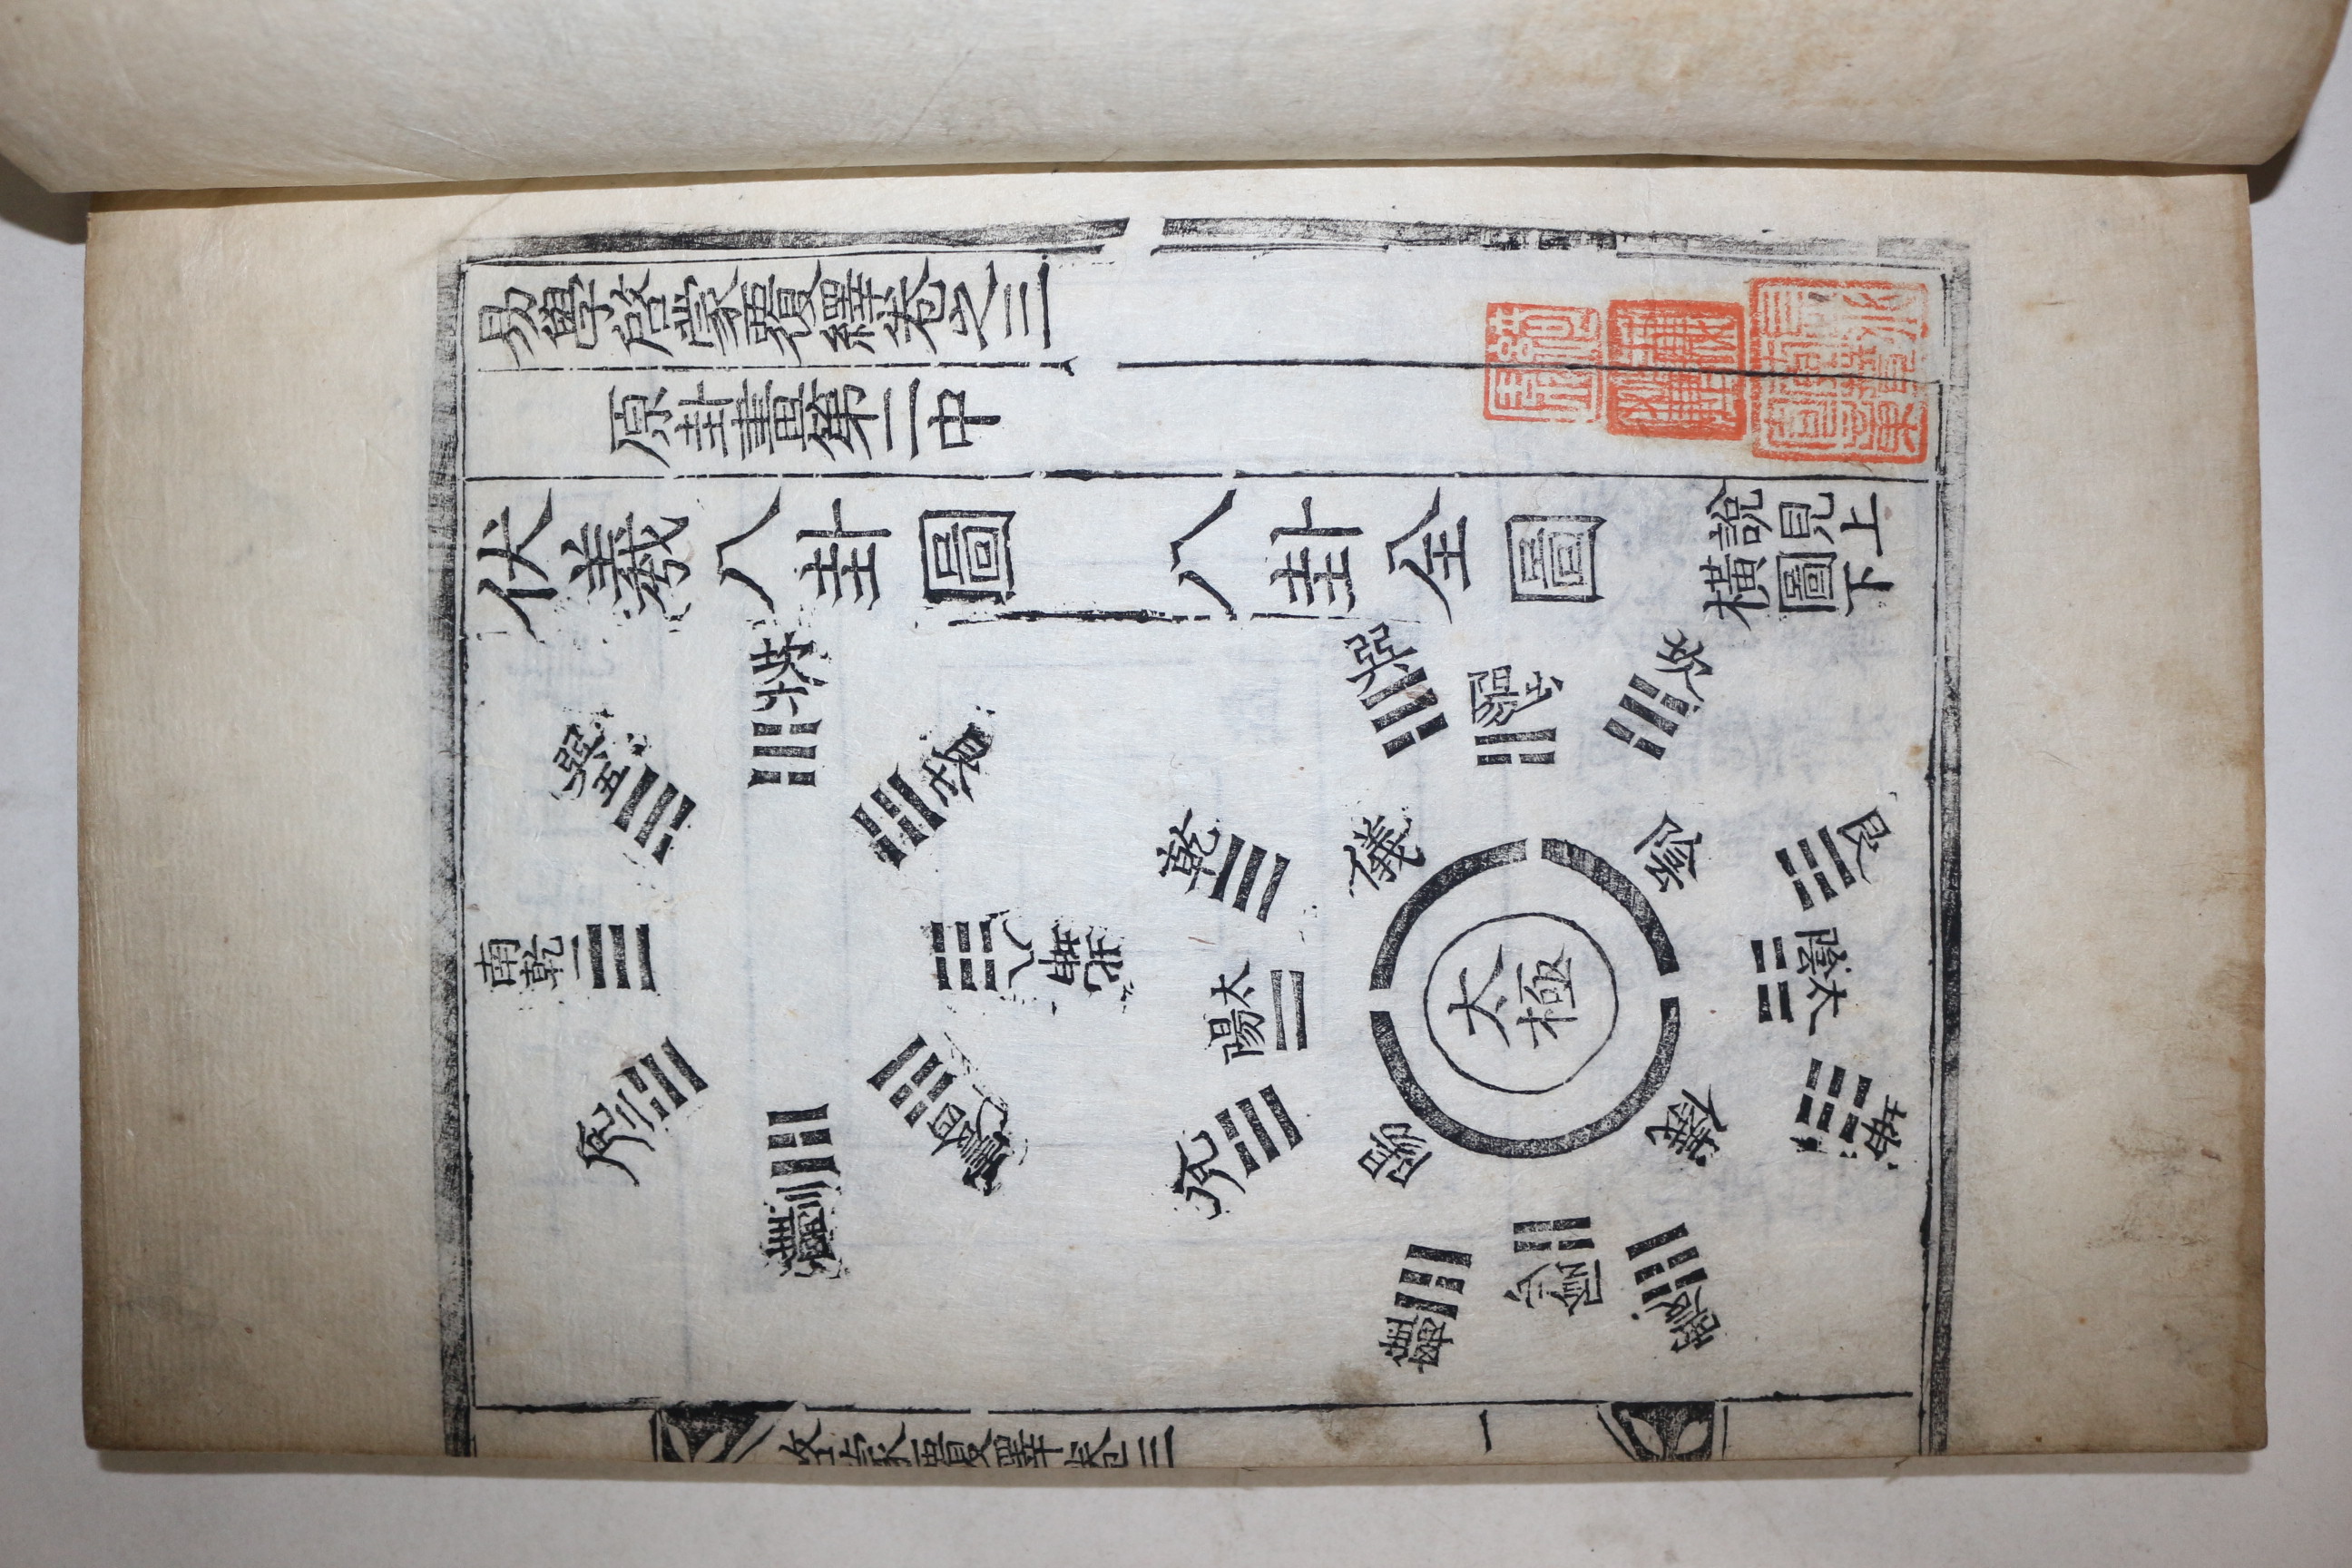 易學啓蒙覆繹卷之三
原卦畫第二中
伏羲八卦圖
南乾一
兌二
離三
巽五
坤八北
八卦全圖
說見上
橫圖下
太極
陽儀
陰儀
太陽
少陰
少陽
太陰
乾
兌
離
震
巽
坎
艮
坤
啓蒙覆繹卷之三
一